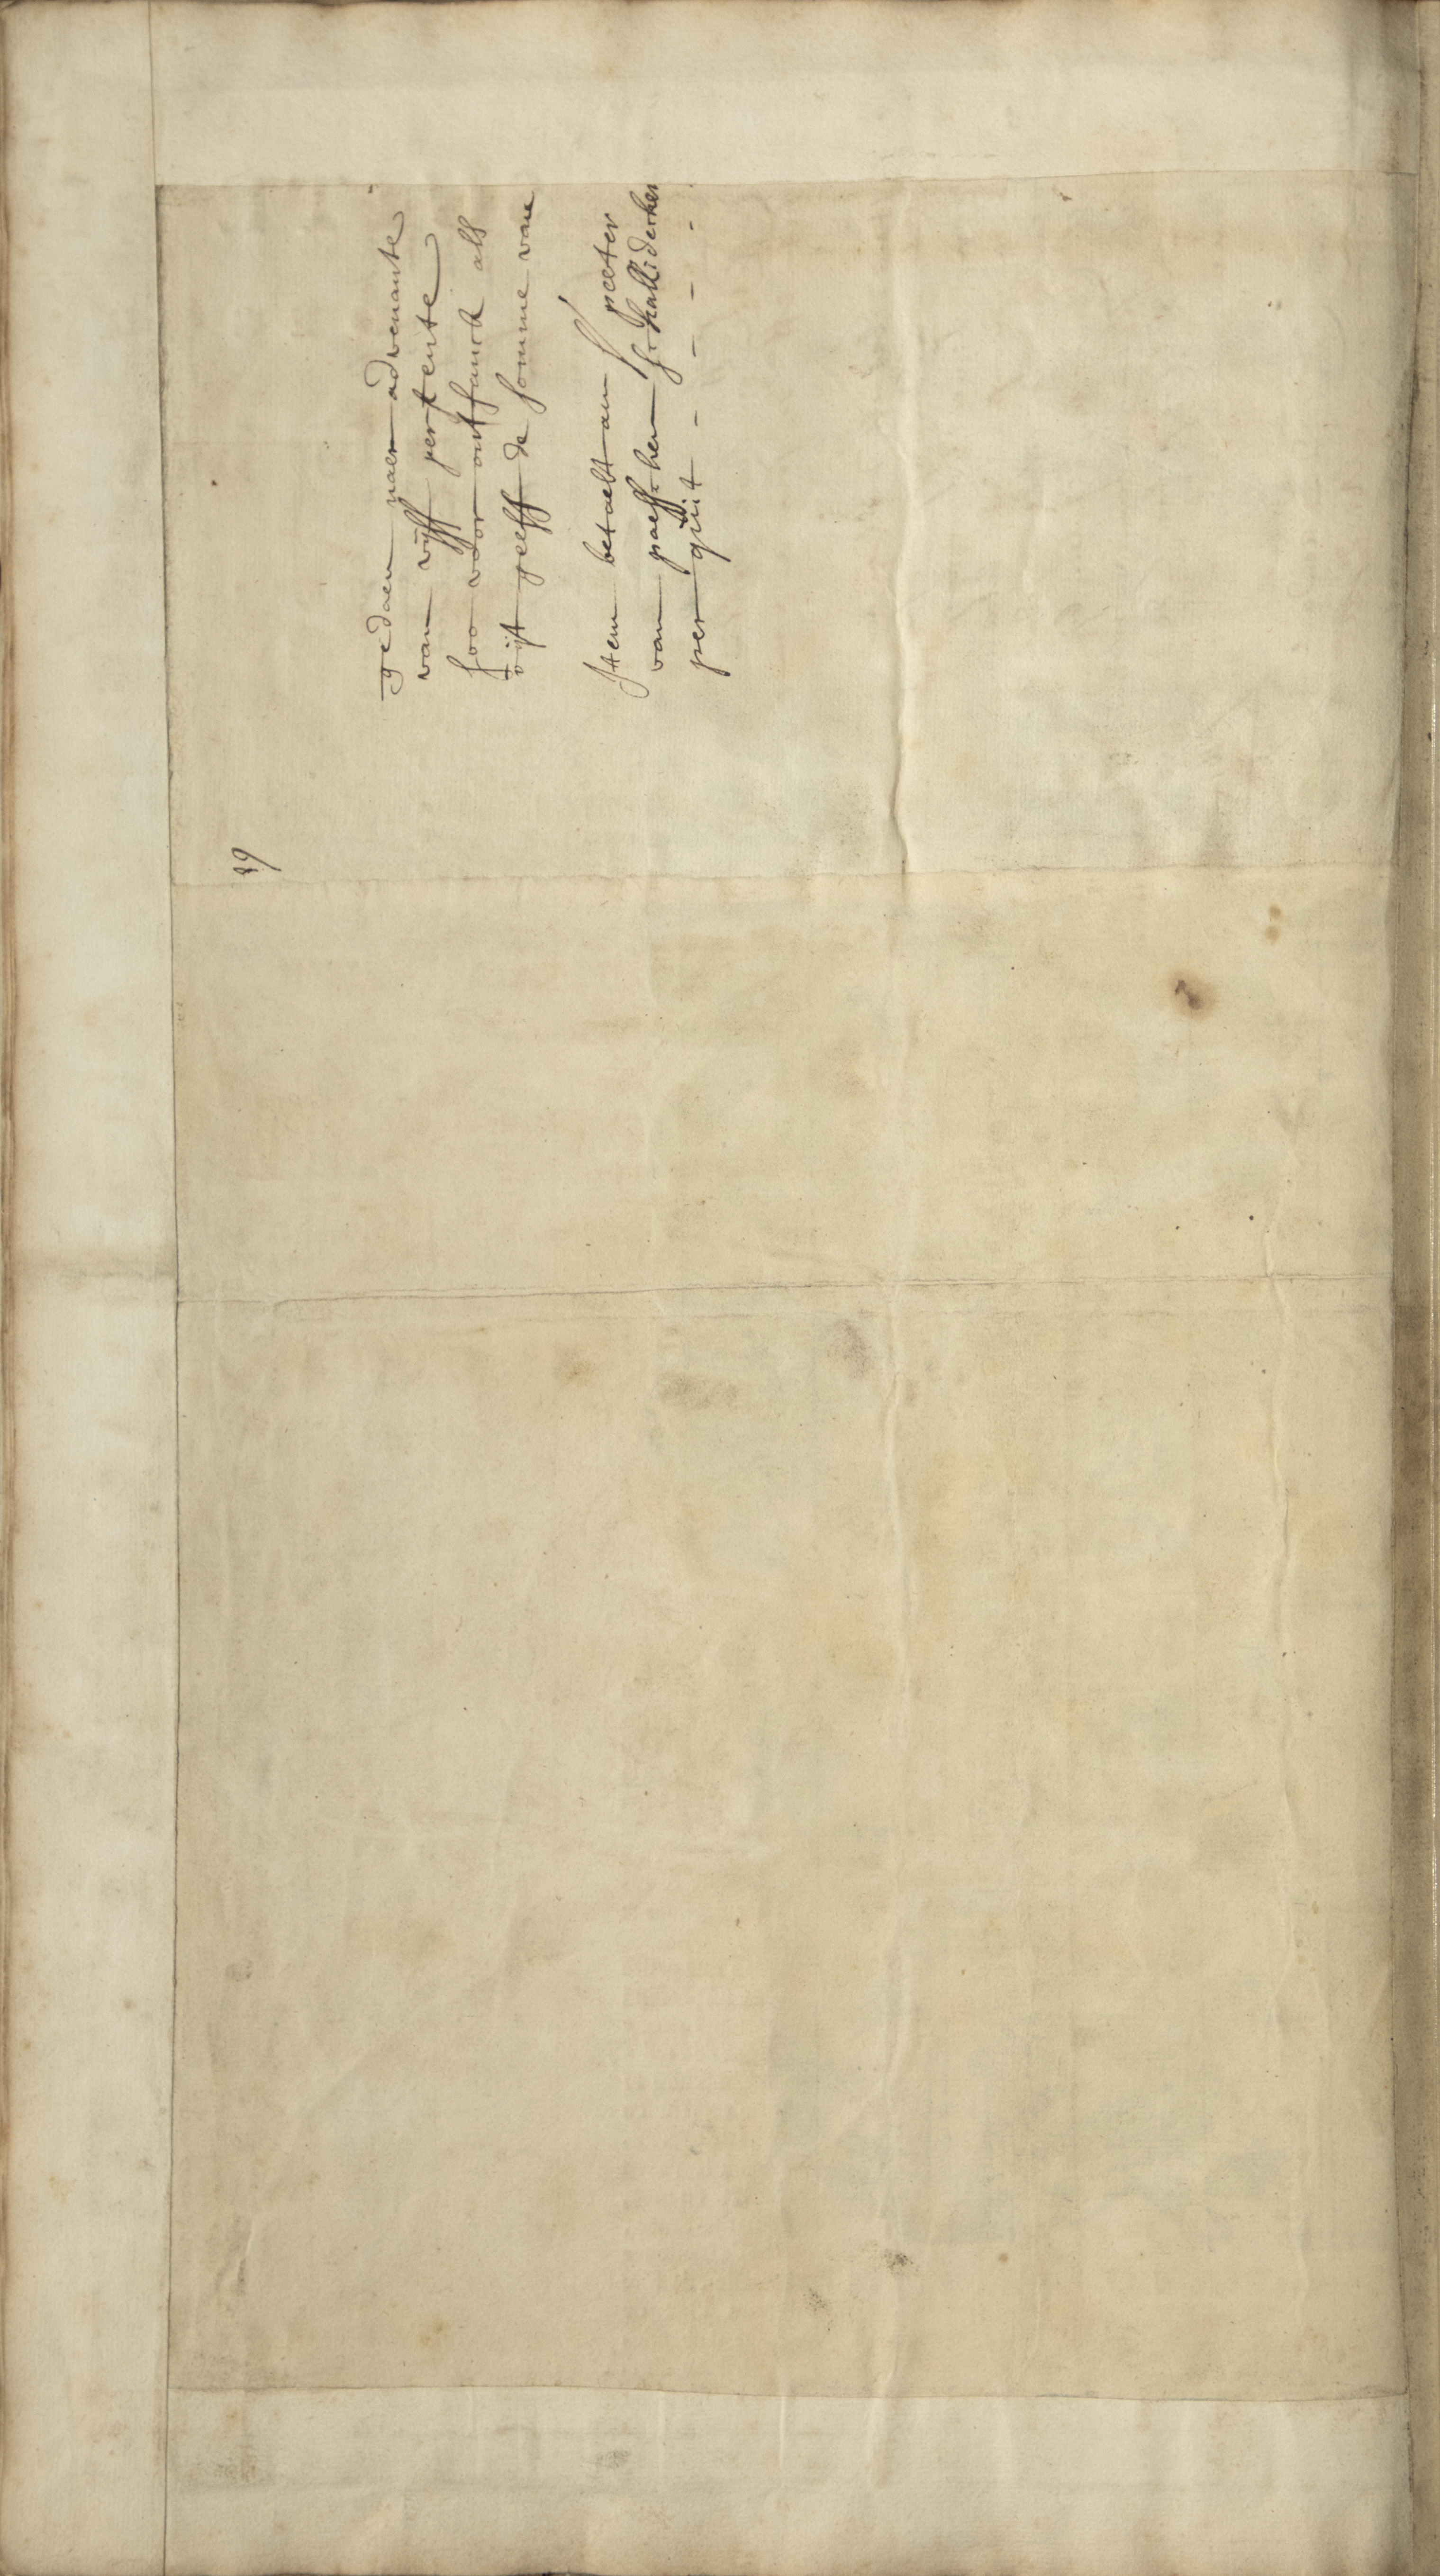 49
gedaen naer advenante
van vijff per sente
soo voor ontfanck als
uijt geeff de somme van
Item betaelt aen peeter
van paesschen
per quit - - - - -